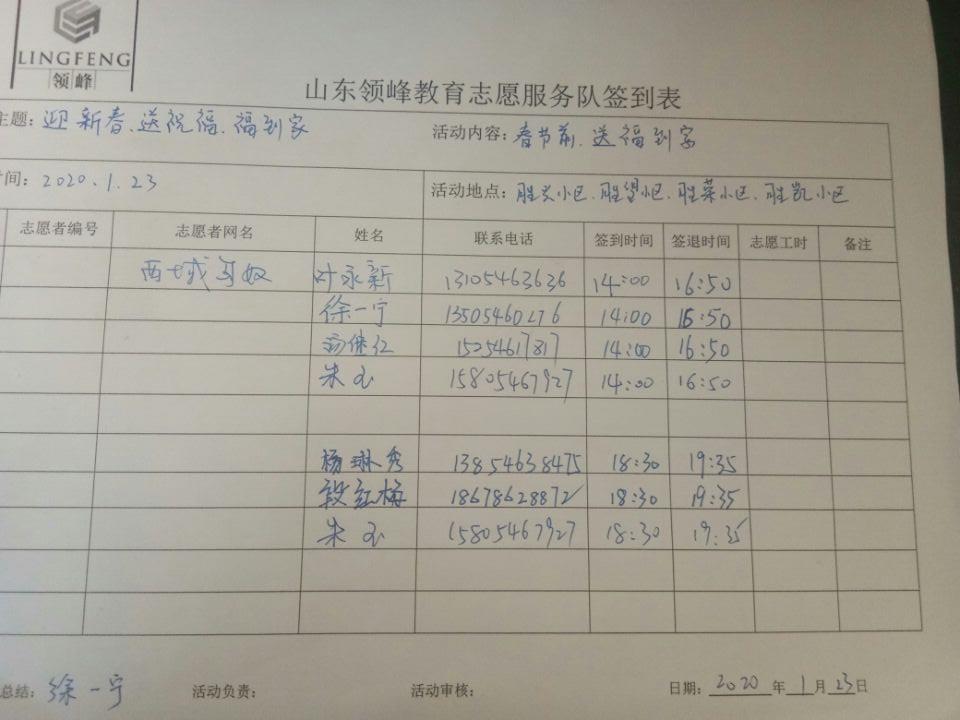 LINGFENG
领峰
山东领峰教育志愿服务队签到表
主题: 迎新春、送祝福、福到家 活动内容: 春节前、送福到家
时间: 2020.1.23 活动地点: 胜兴小区、胜望小区、胜荣小区、胜凯小区
志愿者编号 志愿者网名 姓名 联系电话 签到时间 签退时间 志愿工时 备注
西域 叶永新 13105463636 14:00 16:50
徐一宁 13505460276 14:00 16:50
继仁 15254617817 14:00 16:50
朱玉 15805467927 14:00 16:50
杨琳秀 13854638475 18:30 19:35
段红梅 18678628872 18:30 19:35
朱玉 15805467927 18:30 19:35
总结: 徐一宁 活动负责: 活动审核: 日期: 2020 年 1 月 23 日